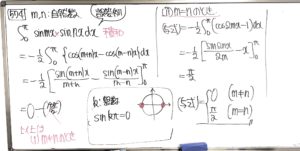 m,n:自然数
∫₀^π sinmx·sinnxdx
= -1/2 ∫₀^π {cos(m+n)x - cos(m-n)x}dx
= -1/2 [sin(m+n)x/(m+n) - sin(m-n)x/(m-n)]₀^π
= 0
(i) m≠nのとき
k:整数
sinkπ=0
(ii) m=nのとき
(与式)= -1/2 ∫₀^π (cos2mx-1)dx
= -1/2 [sin2mx/2m - x]₀^π
= π/2
(与式)= { 0 (m≠n)
π/2 (m=n)